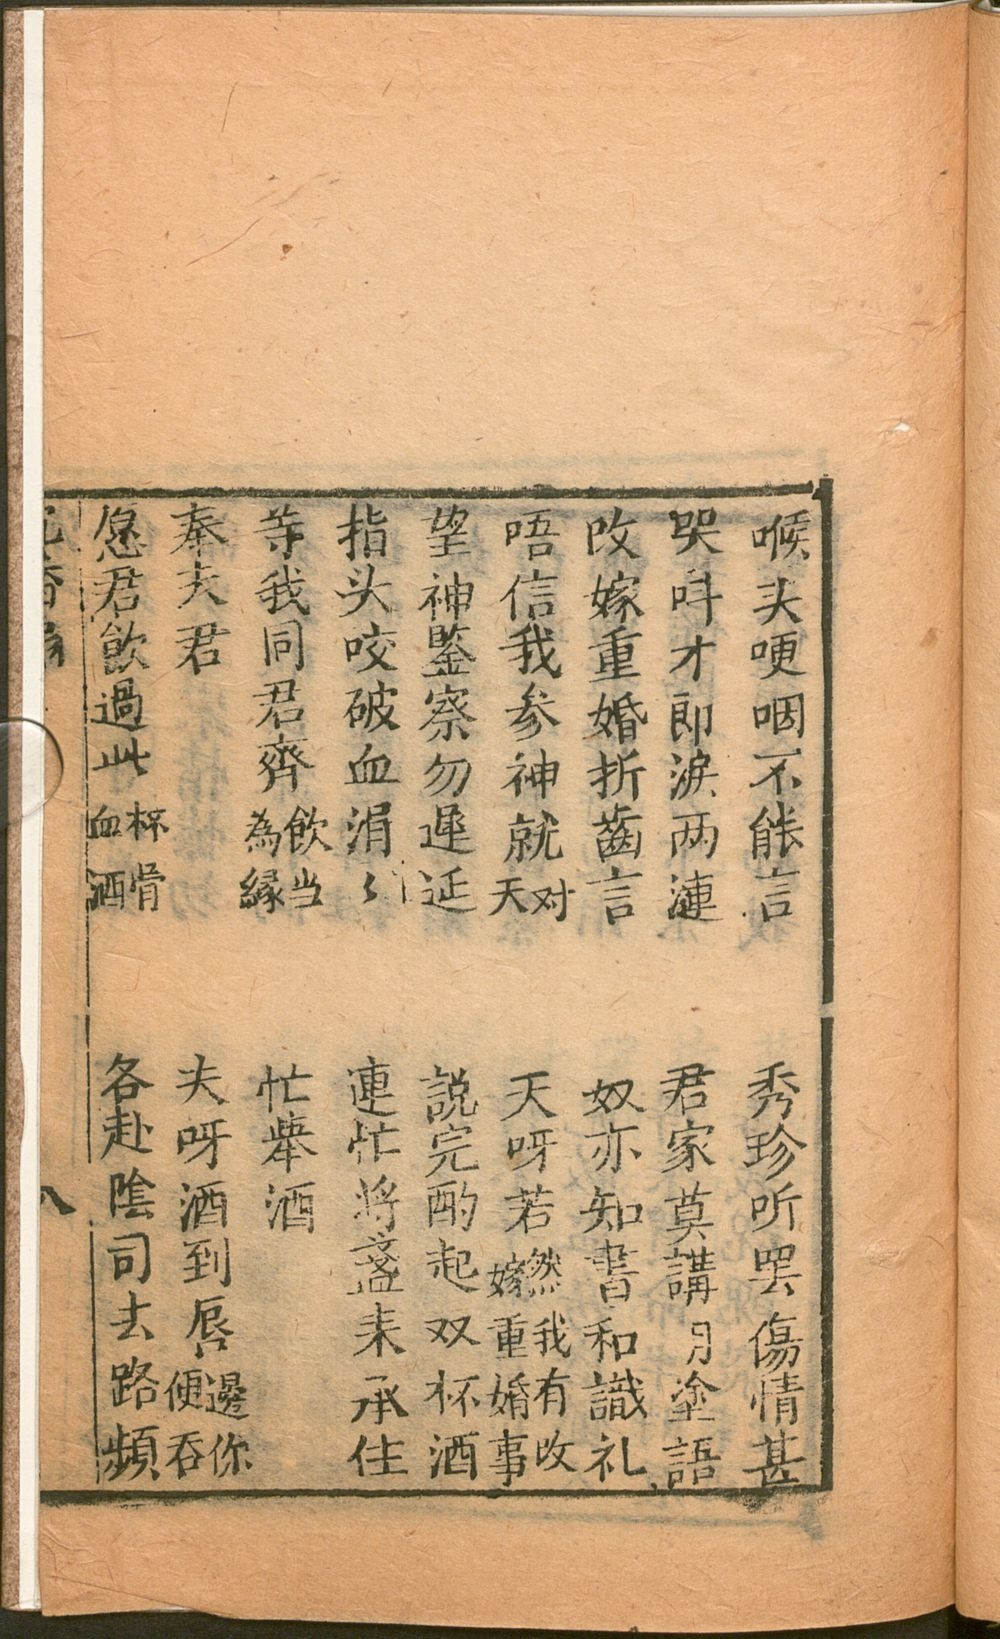 喉头哽咽不能言　秀珍听罢傷情甚
哭呌才即淚两漣　君家莫講月塗語
改嫁重婚折齒言　奴亦知書和識礼
唔信我参神就对天　天呀若然我有改嫁重婚事
望神鑒察勿遲延　説完酌起双杯酒
指头咬破血涓々　連忙将盞来承住
等我同君齊飲当為縁　忙舉酒
奉夫君　夫呀酒到唇邊你便吞
您君飲過此杯骨血酒　各赴陰司去路頻
八